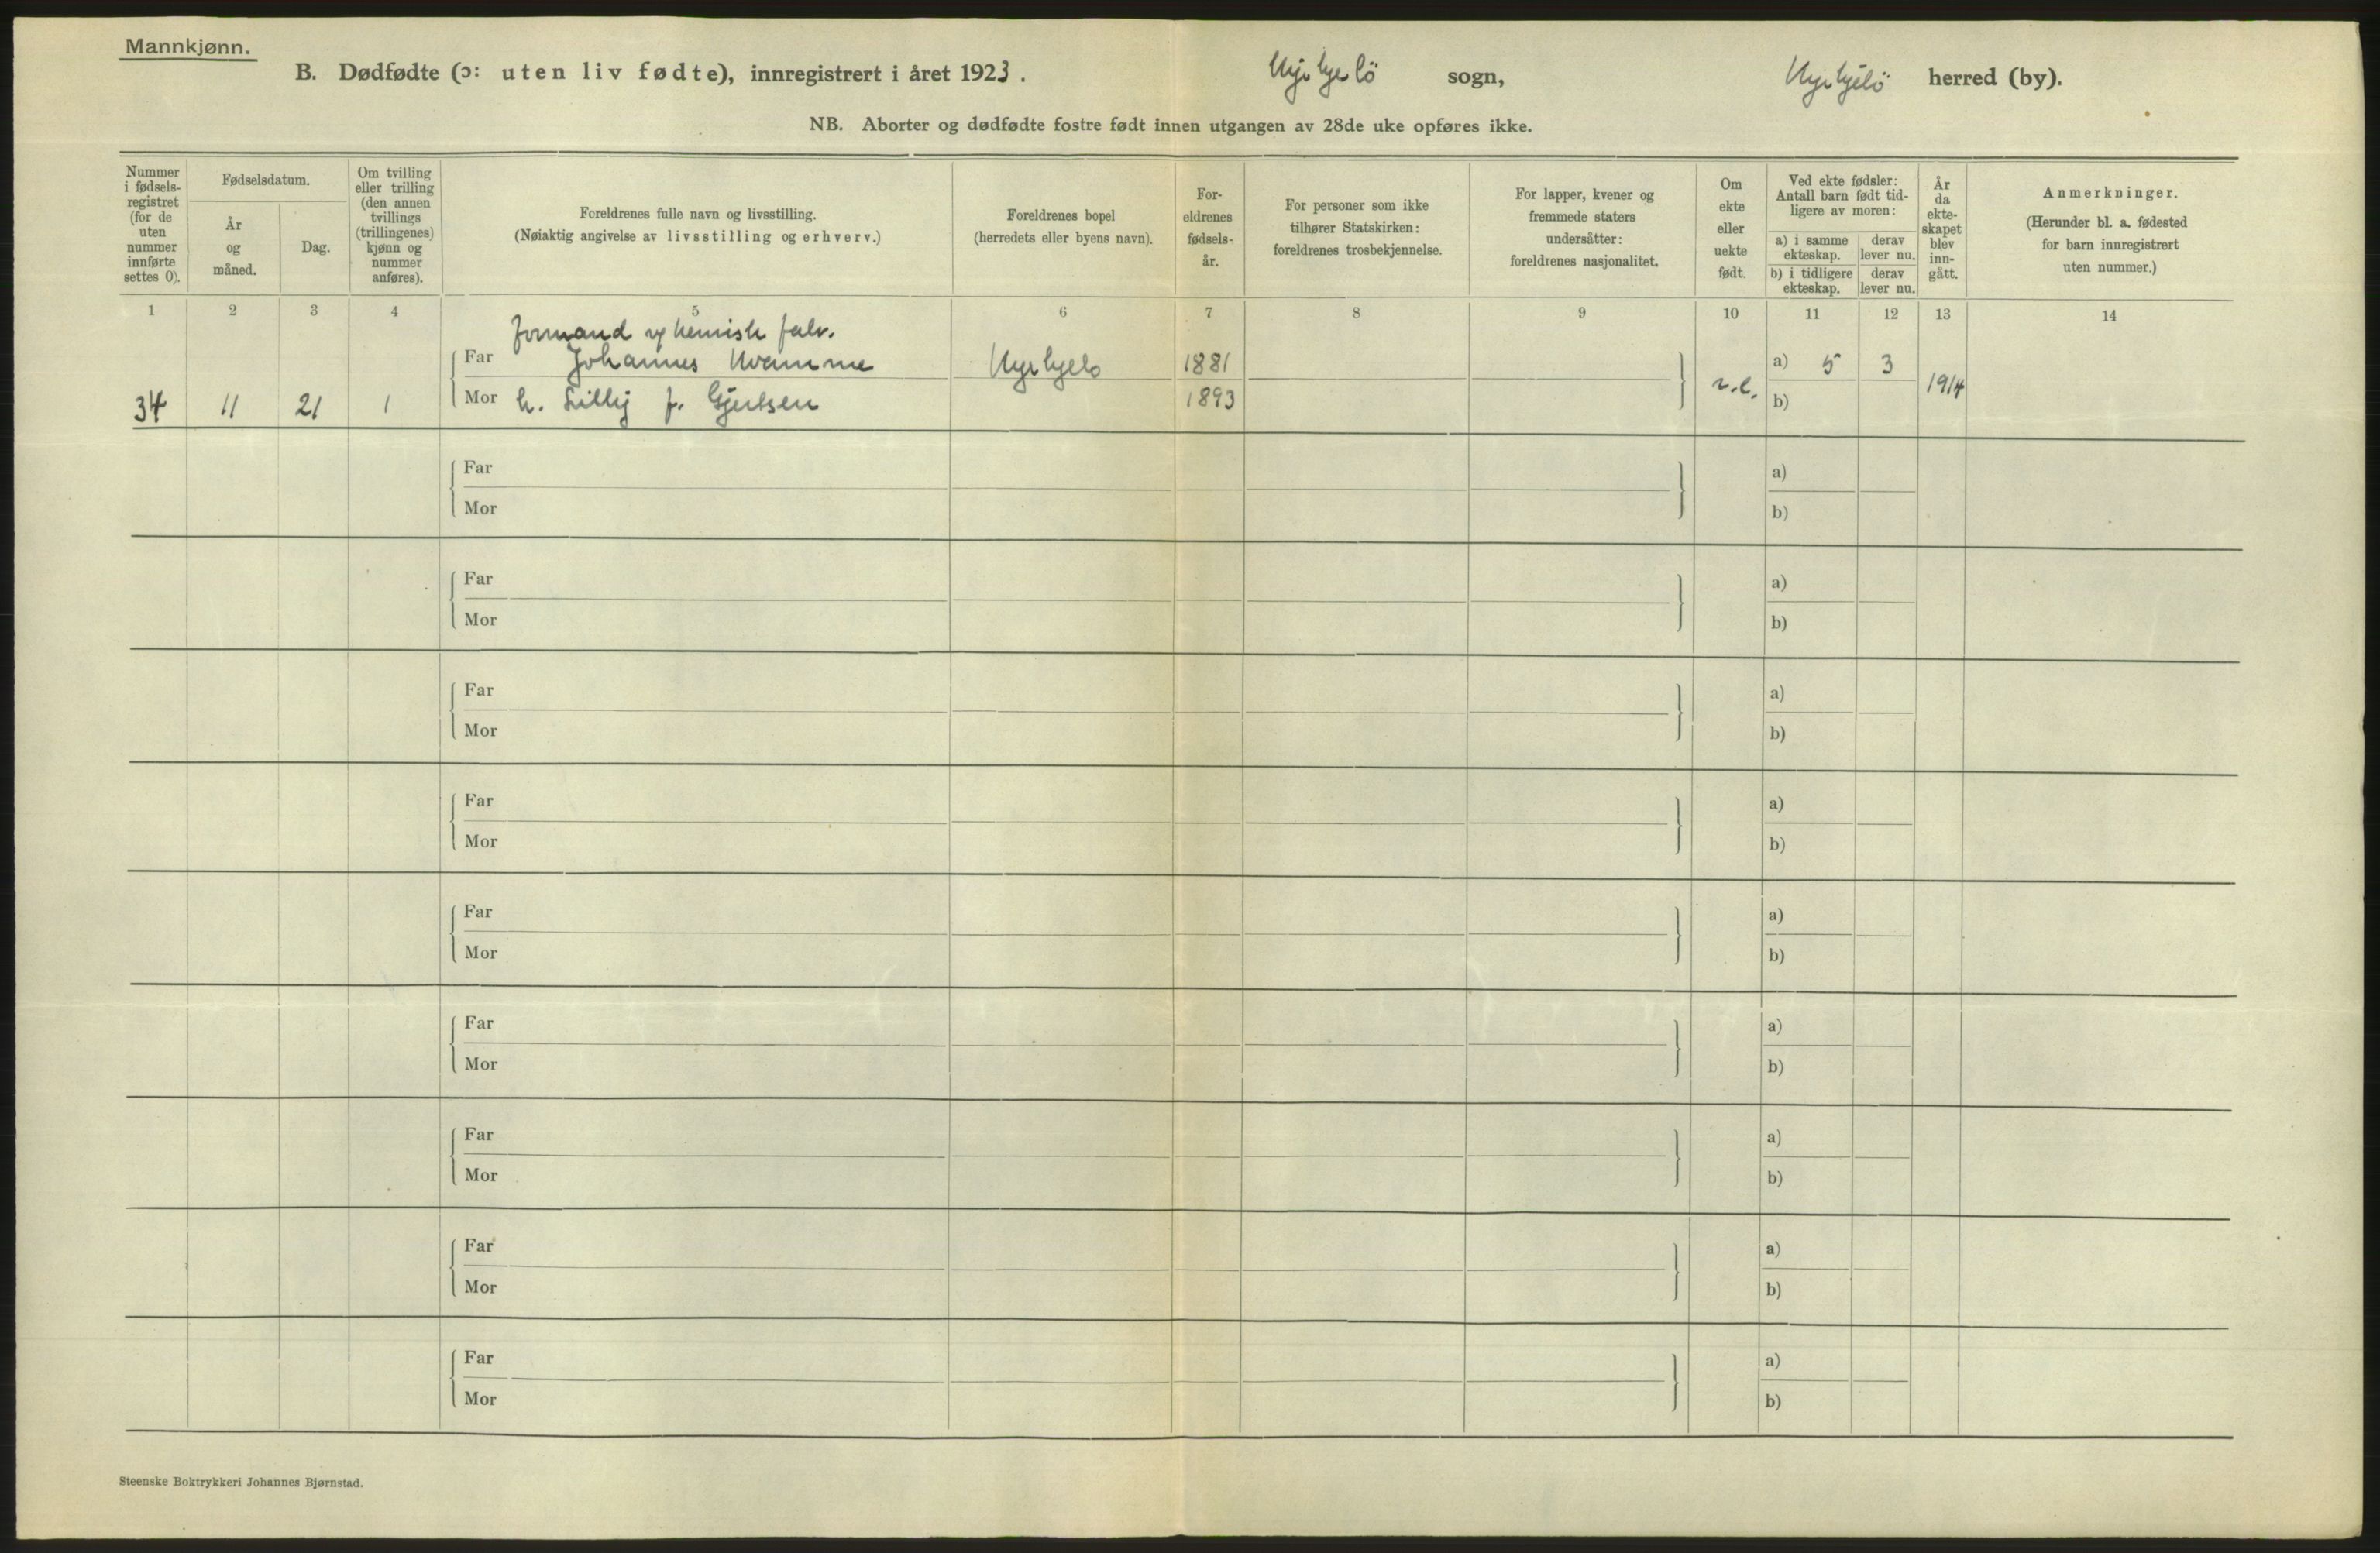 Mannkjønn.
B. Dødfødte (ɔ: uten liv fødte), innregistrert i året 1923. Kyrkjebö sogn, Kyrkjebö herred (by).
NB. Aborter og dødfødte fostre født innen utgangen av 28de uke opføres ikke.
Nummer i fødsels-registret (for de uten nummer innførte settes 0).
Fødselsdatum.
År og måned.
Dag.
Om tvilling eller trilling (den annen tvillings (trillingenes) kjønn og nummer anføres).
Foreldrenes fulle navn og livsstilling.
(Nøiaktig angivelse av livsstilling og erhverv.)
Foreldrenes bopel
(herredets eller byens navn).
For-eldrenes fødsels-år.
For personer som ikke tilhører Statskirken: foreldrenes trosbekjennelse.
For lapper, kvener og fremmede staters undersåtter: foreldrenes nasjonalitet.
Om ekte eller uekte født.
Ved ekte fødsler: Antall barn født tid-ligere av moren:
a) i samme ekteskap.
derav lever nu.
b) i tidligere ekteskap.
derav lever nu.
År da ekte-skapet blev inn-gått.
Anmerkninger.
(Herunder bl. a. fødested for barn innregistrert uten nummer.)
1 2 3 4 5 6 7 8 9 10 11 12 13 14
formand v/ kemisk fabr.
Far Johannes Kvamme Kyrkjebö 1881 a) 5 3
34 11 21 1 Mor h. Lilly f. Gjertsen 1893 e. b) 1914
Far a)
Mor b)
Far a)
Mor b)
Far a)
Mor b)
Far a)
Mor b)
Far a)
Mor b)
Far a)
Mor b)
Far a)
Mor b)
Far a)
Mor b)
Far a)
Mor b)
Steenske Boktrykkeri Johannes Bjørnstad.